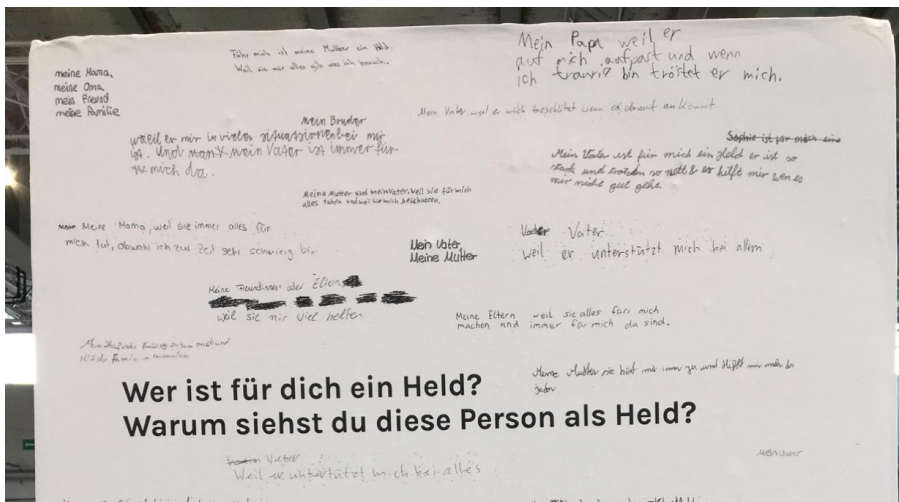 Mein Papa weil er
auf mich aufpast und wenn
ich traurig bin tröstet er mich.
Für mich ist meine Mutter ein Held.
Weil sie mir alles gibt was ich brauch.
meine Mama,
meine Oma,
mein Freund
meine Familie
Mein Vater, weil er mich beschützt wenn es drauf an kommt
mein Bruder
weil er mir in vielen bei mir
ist. Und mein Vater ist immer für
mich da.
Sophie ist für mich eine
Mein Vater ist für mich ein Held er ist so
stark und so nett & er hilft mir wen es
mir nicht gut geht.
Meine Mutter und mein Vater, weil sie für mich
alles tuhen und weil sie mich beschützen.
Meine Mama, weil sie immer alles für
mich tut, obwohl ich zur Zeit sehr schwierig bin.
Mein Vater,
Meine Mutter
Vater
weil er unterstützt mich bei allem
Meine Freundinnen oder Eltern
weil sie mir viel helfen
Meine Eltern weil sie alles fürs mich
machen und immer für mich da sind.
Meine Mutter sie hört mir immer zu und hilft mir
Wer ist für dich ein Held?
Warum siehst du diese Person als Held?
Vater
Weil er untertützt mich bei alles